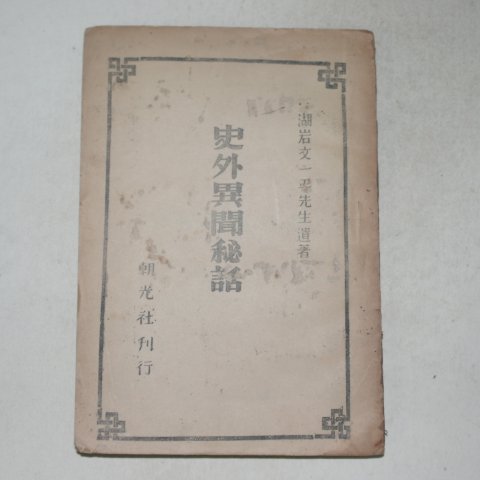 湖岩文一平先生遺著
史外異聞秘話
朝光社刊行